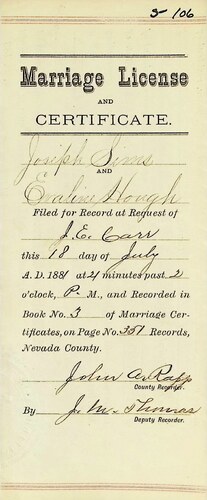 5-106
Marriage License
AND
CERTIFICATE.
Joseph Sims
AND
Evaline Hough
Filed for Record at Request of
J. E. Carr
this 18 day of July
A. D. 1881 at 21 minutes past 2
o'clock, P. M., and Recorded in
Book No. 3 of Marriage Cer-
tificates, on Page No. 357 Records,
Nevada County.
John A. Rapp
County Recorder.
By J. M. Thomas
Deputy Recorder.